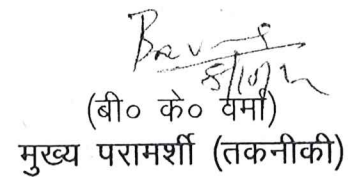 (बी० के० वर्मा)
मुख्य परामर्शी (तकनीकी)